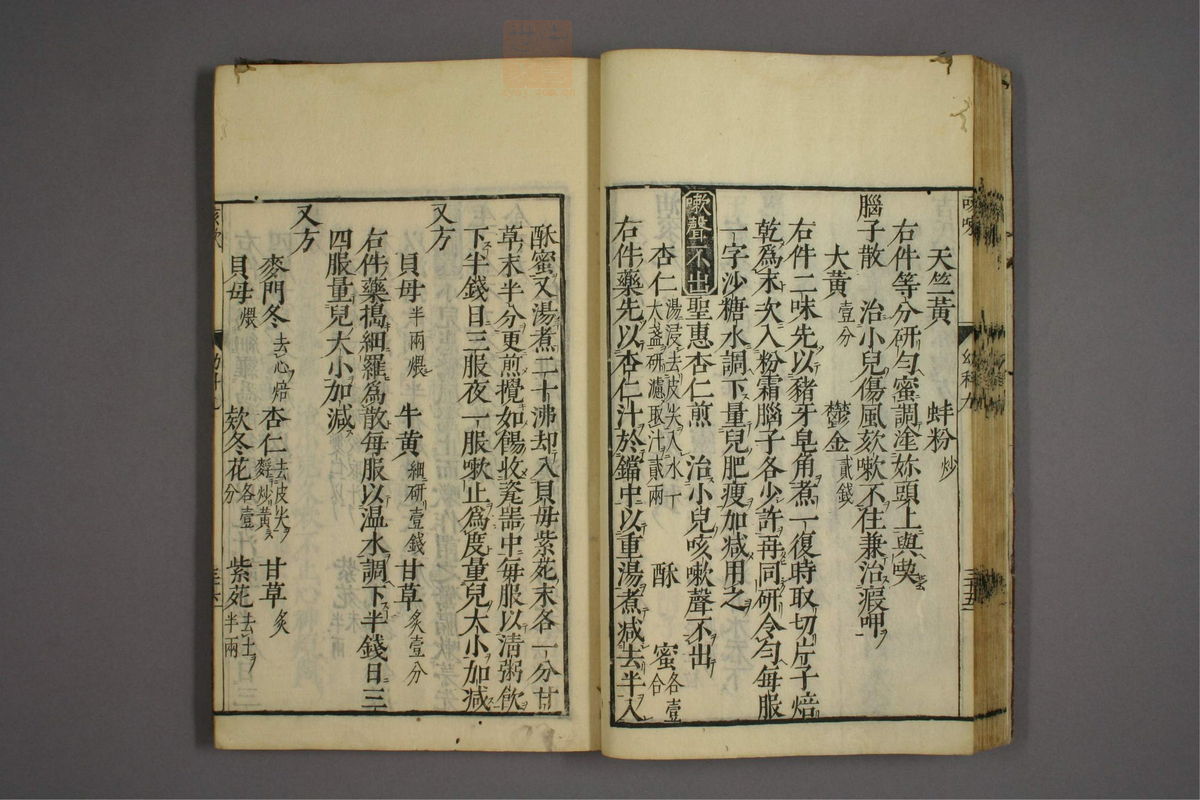 天竺黄 蚌粉炒
右件等分研勻蜜調塗妳頭上與喫
腦子散 治小兒傷風欬嗽不住兼治瘕呷
大黄壹分 鬱金貳錢
右件二味先以豬牙皂角煮一復時取切片子焙
乾爲末次入粉霜腦子各少許再同研令勻每服
一字沙糖水調下量兒肥瘦加減用之
嗽聲不出 聖惠杏仁煎 治小兒咳嗽聲不出
杏仁湯浸去皮尖入水一大盞研濾取汁貳兩 酥 蜜各壹合
右件藥先以杏仁汁於鐺中以重湯煮减去半入
酥蜜又湯煮二十沸却入貝母紫菀末各一分甘
草末半分更煎攪如餳收瓷噐中毎服以清粥飲
下半錢日三服夜一服嗽止爲度量兒大小加减
又方
貝母半兩煨 牛黄細研壹錢 甘草炙壹分
右件藥搗細羅爲散每服以温水調下半錢日三
四服量兒大小加减
又方
麥門冬去心焙 杏仁去皮尖麩炒黄 甘草炙
貝母煨 欵冬花各壹分 紫菀去土半兩
幼科九